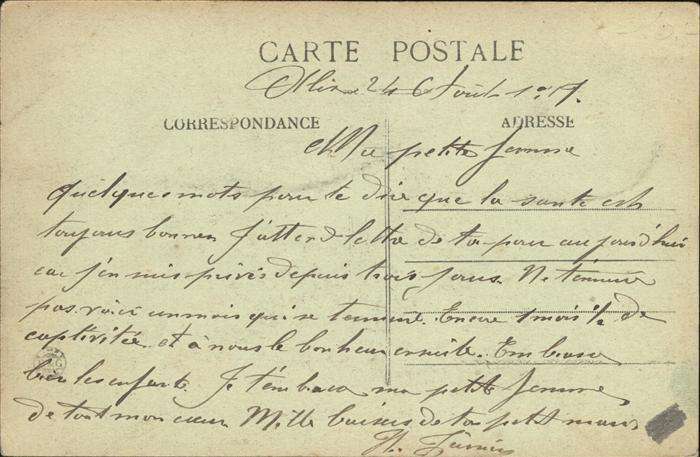 CARTE POSTALE
24 Août
CORRESPONDANCE
ADRESSE
Ma petite femme
quelques mots pour te dire que la santé est
toujours bonne J'attend lettre de toi pour aujourd'hui
car j'en suis privés depuis trois jours. Ne t'ennuie
pas voici un mois qui se termine. Encore 1 mois 1/2 de
captivitée et à nous le bonheur ensuite. Embrasse
bien les enfants. Je t'embrasse ma petite femme
de tout mon cœur Mille baisers de ton petit mari